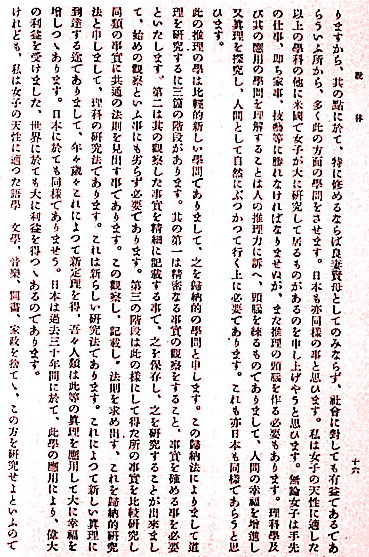 説林
十六
りますから、其の點に於て、特に修めるならば良妻賢母としてのみならず、社會に對しても有益であるであ
らういふ所から、多く此の方面の學問をさせます。日本も亦同樣の事と思ひます。私は女子の天性に適した
以上の學科の他に米國で女子が大に研究して居るものがあるのを申し上げやうと思ひます。無論女子は手先
の仕事、即ち家事、技藝等に勝れなければなりませぬが、また推理の頭腦を作る必要もあります。理科學及
び其の應用の學問を理解することは人の推理力に訴へ、頭腦を練るものでありまして、人間の幸福を增進し
又眞理を探究し、人間として自然にぶつかつて行く上に必要であります。これも亦日本も同樣であらうと思
ひます。
此の推理の學は比較的新しい學問でありまして、之を歸納的の學問と申します。この歸納法によりまして道
理を研究するに三箇の階段があります。其の第一は精密なる事實の觀察をすること、事實を確める事を必要
といたします。第二は其の觀察した事實を精細に記載する事で、之を保存し、之を研究することが出來まし
て、始めの觀察といふ事にも劣らず必要であります。第三の階段は此の樣にして得た所の事實を比較研究し
同類の事實に共通の法則を見出す事であります。この觀察し、記載し、法則を求め出す、これを歸納的研究
法と申しまして、理科の研究法であります。これは新らしい研究法であります。これによつて新しい眞理に
到達する途でありまして、年々歲々これによつて新定理を得、吾々人類は此等の眞理を應用して大に幸福を
增しつゝあります。日本に於ても同樣でありませう。日本は過去三十年間に於て、此學の應用により、偉大
の利益を受けました、世界に於ても大に利益を得つゝあるのであります。
けれども、私は女子の天性に適つた語學、文學、音樂、圖畫、家政を捨てゝ、この方を研究せよといふので